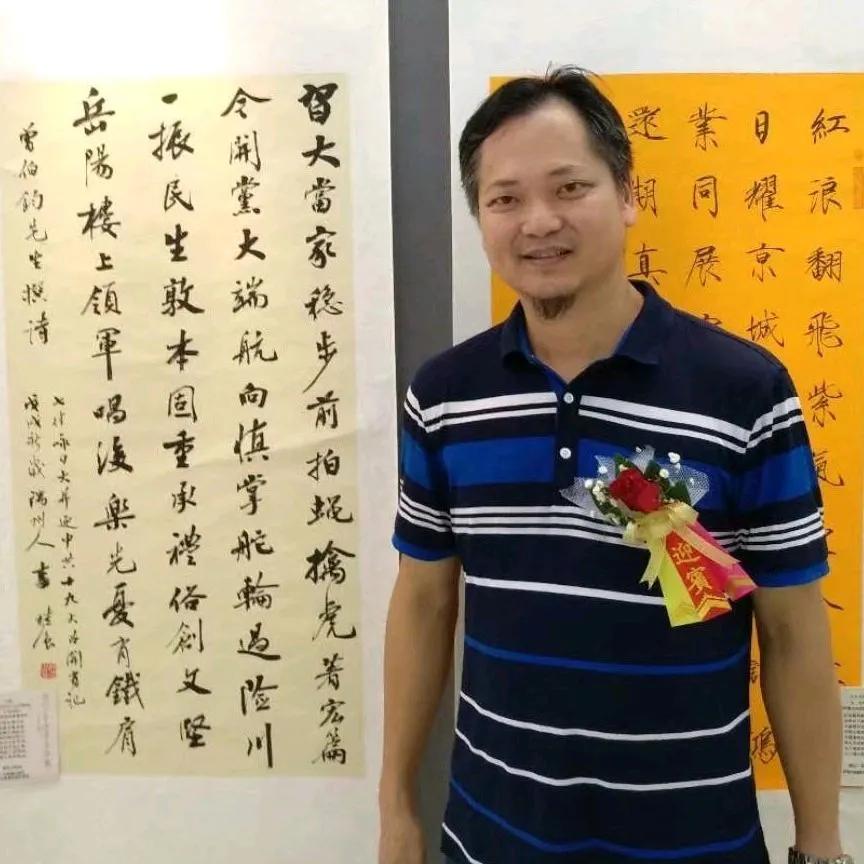 習大當家稳步前拍蠅擒虎著宏篇
令開黨大端航向慎掌舵輪過险川
一振民生敦本固重承禮俗創文堅
岳陽樓上領軍唱後樂先憂有鐵肩
曾伯鈞先生撰詩
中共十九大召開有記
戊戌新歲
紅浪翻飛紫氣
日耀京城
業同展
還期真
迎賓